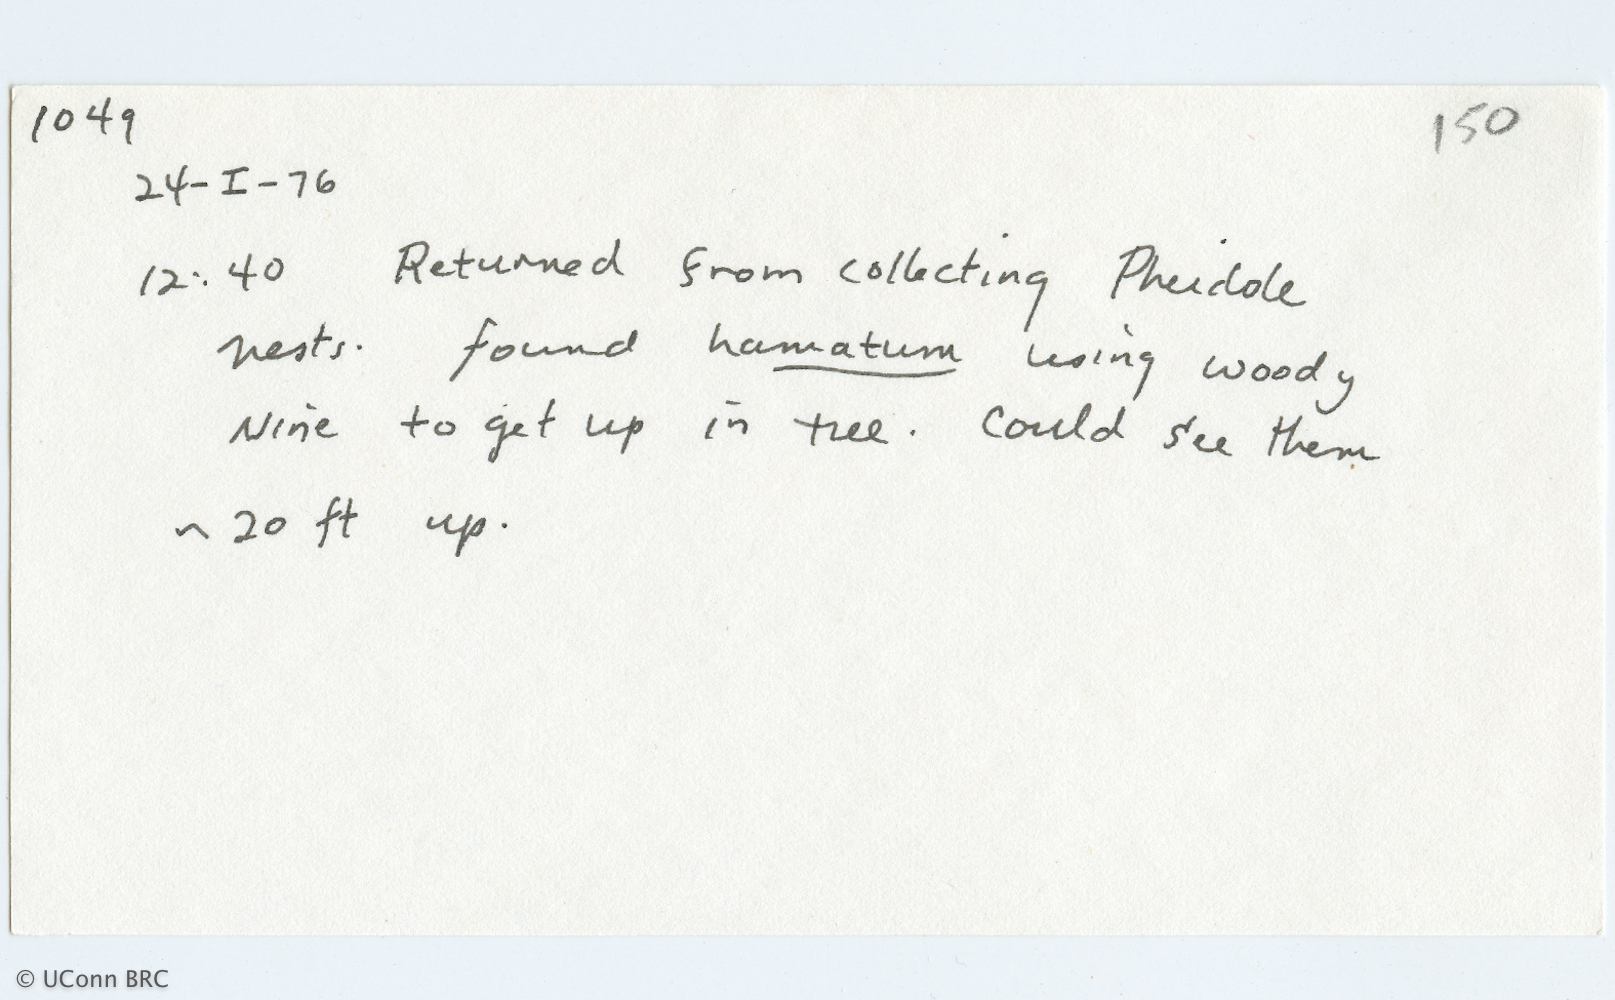 1049 150
24-I-76
12:40 Returned from collecting Pheidole
nests. found hamatum using woody
vine to get up in tree. Could see them
~ 20 ft up.
© UConn BRC